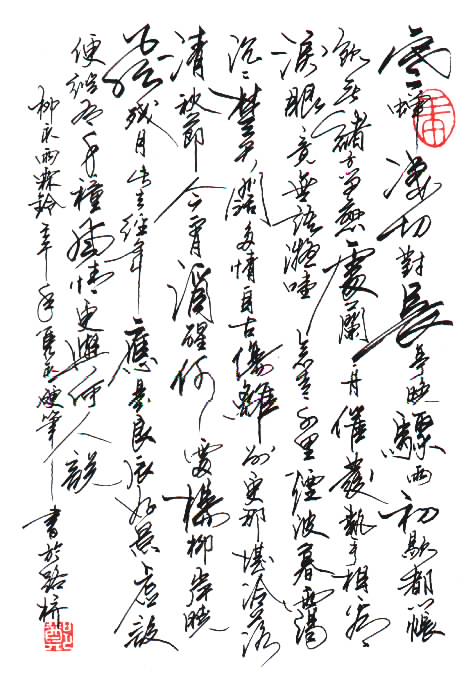 寒蟬凄切對長亭晚驟雨初歇都門帳
飲無緒留戀處蘭舟催發執手相看
淚眼竟無語凝噎念去去千里煙波暮靄
沉沉楚天闊多情自古傷離別更那堪冷落
清秋節今宵酒醒何處楊柳岸曉
風殘月此去經年應是良辰好景虛設
便縱有千種風情更與何人說
柳永雨霖鈴 硬筆書於路橋